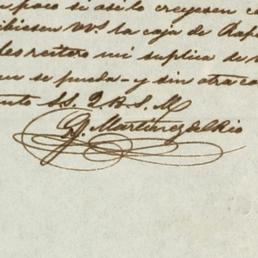 poco si asilo creyesen co
ibiesen VVs la caja de Rap
les reitero mi suplica de
ue se pueda - y sin otra co
nto SS. Q. B. S. M
J. Martinez del Rio